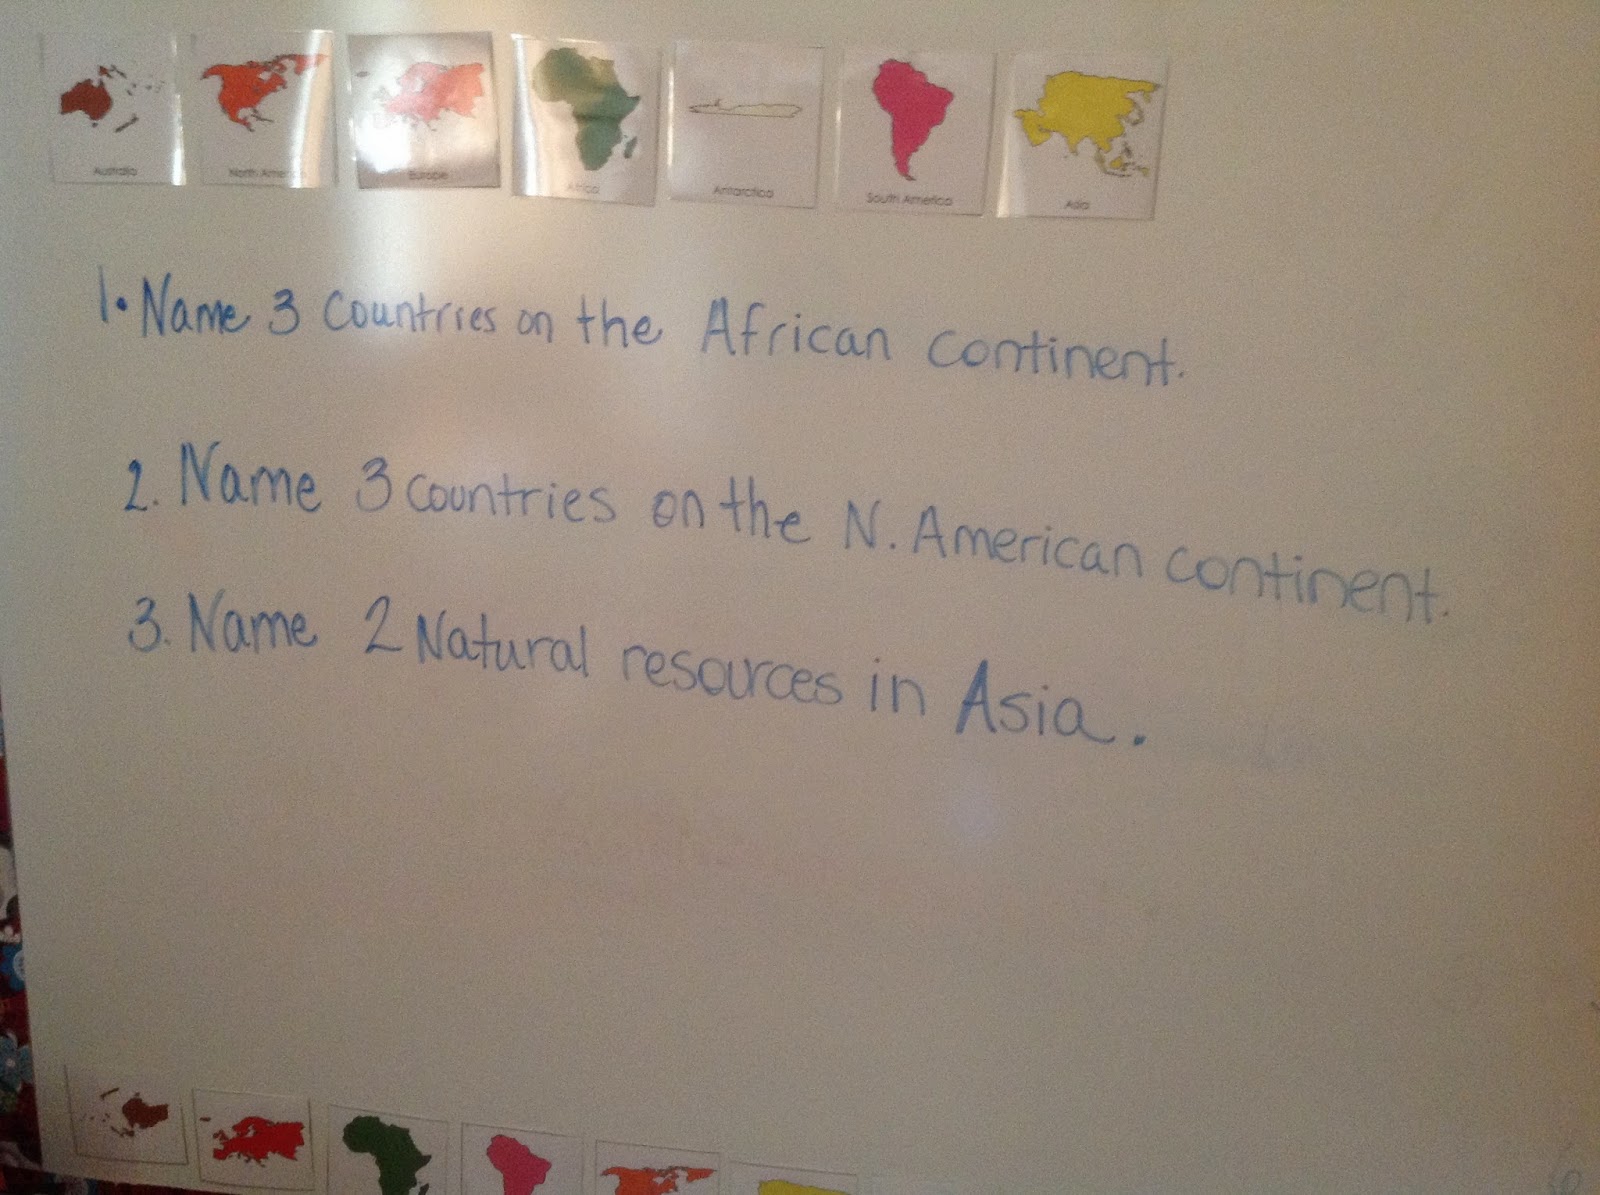 Australia
North America
Europe
Africa
Antarctica
South America
Asia
1. Name 3 Countries on the African continent.
2. Name 3 countries on the N. American continent.
3. Name 2 Natural resources in Asia.